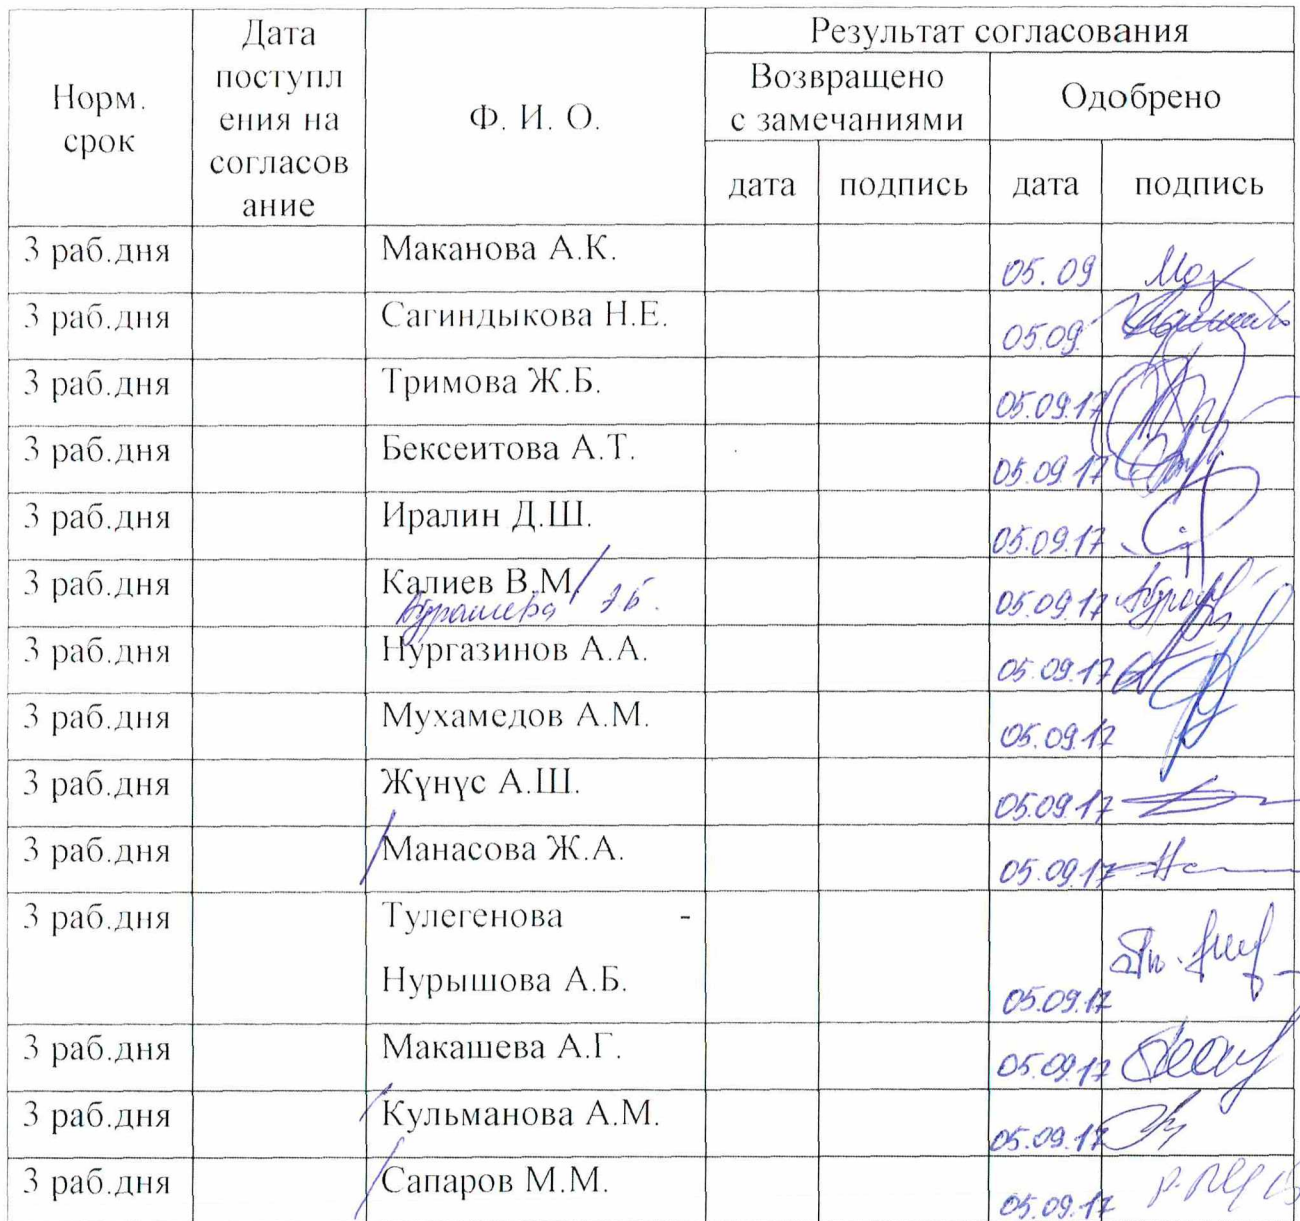 Норм.
срок
Дата
поступл
ения на
согласов
ание
Ф. И. О.
Результат согласования
Возвращено
с замечаниями
Одобрено
дата
подпись
дата
подпись
3 раб.дня Маканова А.К. 05.09
3 раб.дня Сагиндыкова Н.Е. 05.09
3 раб.дня Тримова Ж.Б. 05.09.17
3 раб.дня Бексеитова А.Т. 05.09.17
3 раб.дня Иралин Д.Ш. 05.09.17
3 раб.дня Калиев В.М. 05.09.17
3 раб.дня Нургазинов А.А. 05.09.17
3 раб.дня Мухамедов А.М. 05.09.17
3 раб.дня Жүнүс А.Ш. 05.09.17
3 раб.дня Манасова Ж.А. 05.09.17
3 раб.дня Тулегенова -
Нурышова А.Б. 05.09.17
3 раб.дня Макашева А.Г. 05.09.17
3 раб.дня Кульманова А.М. 05.09.17
3 раб.дня Сапаров М.М. 05.09.17